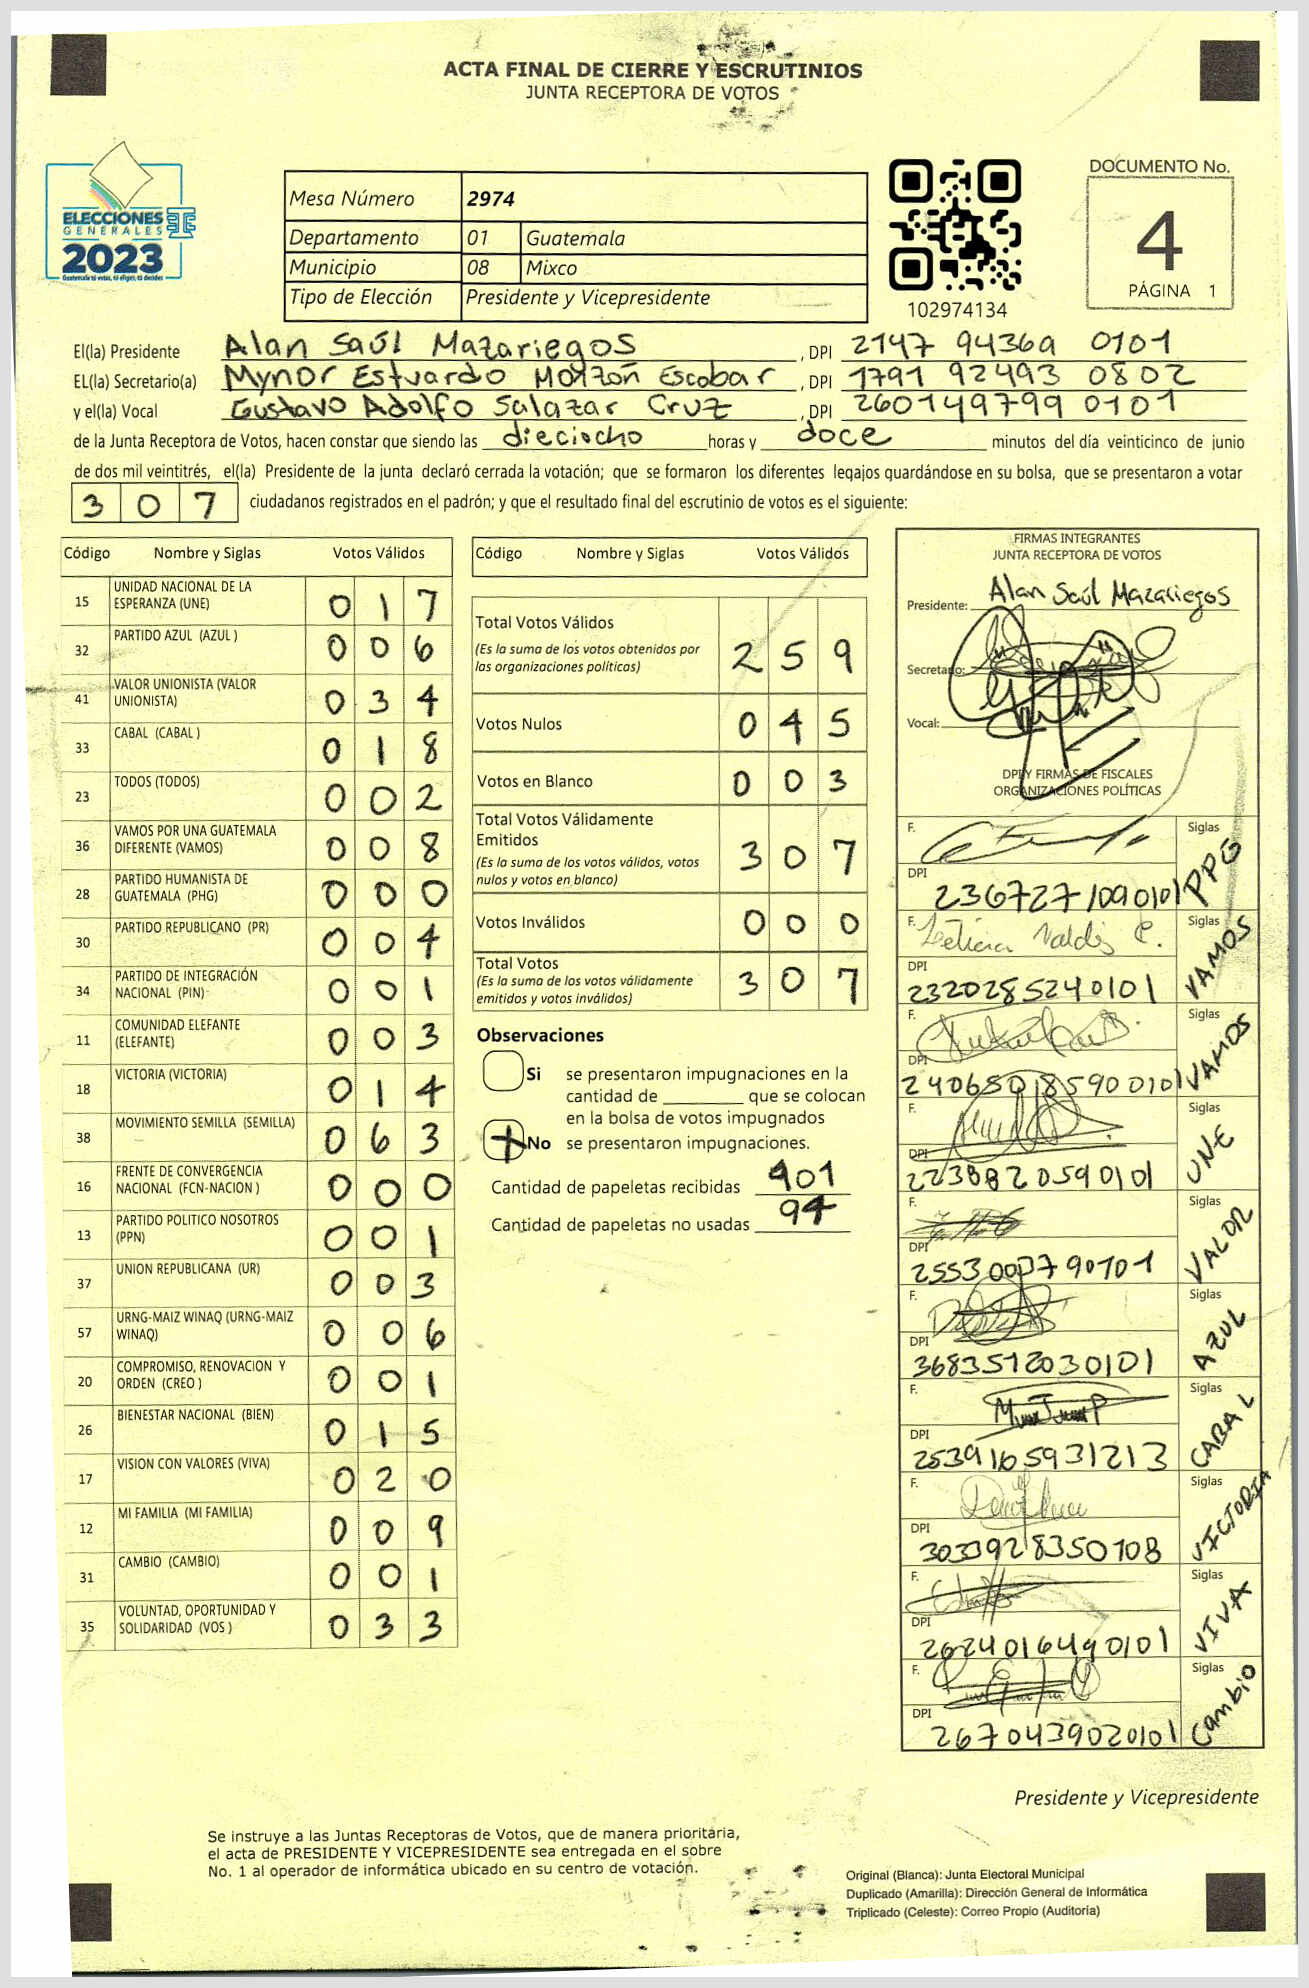 ACTA FINAL DE CIERRE Y ESCRUTINIOS
JUNTA RECEPTORA DE VOTOS
ELECCIONES
GENERALES
2023
Guatemala tú votas, tú eliges, tú decides
Mesa Número 2974
Departamento 01 Guatemala
Municipio 08 Mixco
Tipo de Elección Presidente y Vicepresidente
102974134
DOCUMENTO No.
4
PÁGINA 1
El(la) Presidente Alan Saúl Mazariegos , DPI 2147 94369 0101
EL(la) Secretario(a) Mynor Estuardo Monzón Escobar , DPI 1791 92493 0802
y el(la) Vocal Gustavo Adolfo Salazar Cruz , DPI 260149799 0101
de la Junta Receptora de Votos, hacen constar que siendo las dieciocho horas y doce minutos del día veinticinco de junio
de dos mil veintitrés, el(la) Presidente de la junta declaró cerrada la votación; que se formaron los diferentes legajos quardándose en su bolsa, que se presentaron a votar
307 ciudadanos registrados en el padrón; y que el resultado final del escrutinio de votos es el siguiente:
Código Nombre y Siglas Votos Válidos
15 UNIDAD NACIONAL DE LA ESPERANZA (UNE) 017
32 PARTIDO AZUL (AZUL ) 006
41 VALOR UNIONISTA (VALOR UNIONISTA) 034
33 CABAL (CABAL ) 018
23 TODOS (TODOS) 002
36 VAMOS POR UNA GUATEMALA DIFERENTE (VAMOS) 008
28 PARTIDO HUMANISTA DE GUATEMALA (PHG) 000
30 PARTIDO REPUBLICANO (PR) 004
34 PARTIDO DE INTEGRACIÓN NACIONAL (PIN) 001
11 COMUNIDAD ELEFANTE (ELEFANTE) 003
18 VICTORIA (VICTORIA) 014
38 MOVIMIENTO SEMILLA (SEMILLA) 063
16 FRENTE DE CONVERGENCIA NACIONAL (FCN-NACION ) 000
13 PARTIDO POLITICO NOSOTROS (PPN) 001
37 UNION REPUBLICANA (UR) 003
57 URNG-MAIZ WINAQ (URNG-MAIZ WINAQ) 006
20 COMPROMISO, RENOVACION Y ORDEN (CREO ) 001
26 BIENESTAR NACIONAL (BIEN) 015
17 VISION CON VALORES (VIVA) 020
12 MI FAMILIA (MI FAMILIA) 009
31 CAMBIO (CAMBIO) 001
35 VOLUNTAD, OPORTUNIDAD Y SOLIDARIDAD (VOS ) 033
Código Nombre y Siglas Votos Válidos
Total Votos Válidos 259
(Es la suma de los votos obtenidos por
las organizaciones políticas)
Votos Nulos 045
Votos en Blanco 003
Total Votos Válidamente
Emitidos 307
(Es la suma de los votos válidos, votos
nulos y votos en blanco)
Votos Inválidos 000
Total Votos 307
(Es la suma de los votos válidamente
emitidos y votos inválidos)
Observaciones
Si se presentaron impugnaciones en la
cantidad de que se colocan
en la bolsa de votos impugnados
No se presentaron impugnaciones.
Cantidad de papeletas recibidas 401
Cantidad de papeletas no usadas 94
FIRMAS INTEGRANTES
JUNTA RECEPTORA DE VOTOS
Presidente: Alan Saúl Mazariegos
Secretario:
Vocal:
DPI Y FIRMAS DE FISCALES
ORGANIZACIONES POLÍTICAS
F. Siglas PPG
DPI 2367271090101
F. Leticia Valdés C. Siglas VAMOS
DPI 2320285240101
F. Siglas VAMOS
DPI 24065085900101
F. Siglas UNE
DPI 2238820590101
F. Siglas VALOR
DPI 2553000790101
F. Siglas AZUL
DPI 3683512030101
F. Siglas CABAL
DPI 2539165931213
F. Siglas VICTORIA
DPI 3033928350108
F. Siglas VIVA
DPI 2624016490101
F. Siglas Cambio
DPI 2670439020101
Presidente y Vicepresidente
Se instruye a las Juntas Receptoras de Votos, que de manera prioritaria,
el acta de PRESIDENTE Y VICEPRESIDENTE sea entregada en el sobre
No. 1 al operador de informática ubicado en su centro de votación.
Original (Blanca): Junta Electoral Municipal
Duplicado (Amarilla): Dirección General de Informática
Triplicado (Celeste): Correo Propio (Auditoría)